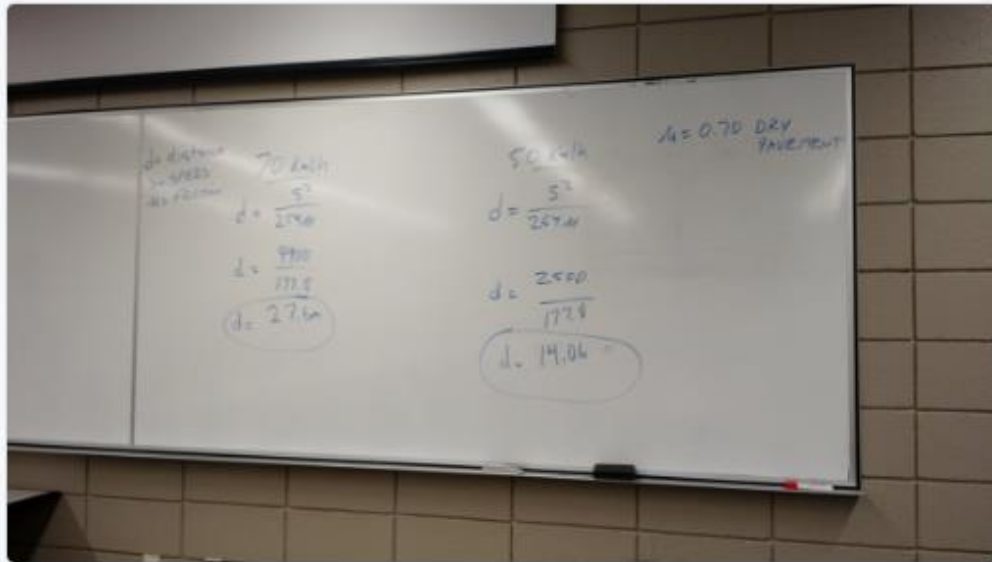 d = distance
S = SPEED
70 km/h
d = S²
254µ
d = 4900
177.8
d = 27.6m
50 km/h
d = S²
254µ
d = 2500
177.8
d = 14.06
µ = 0.70 DRY
PAVEMENT